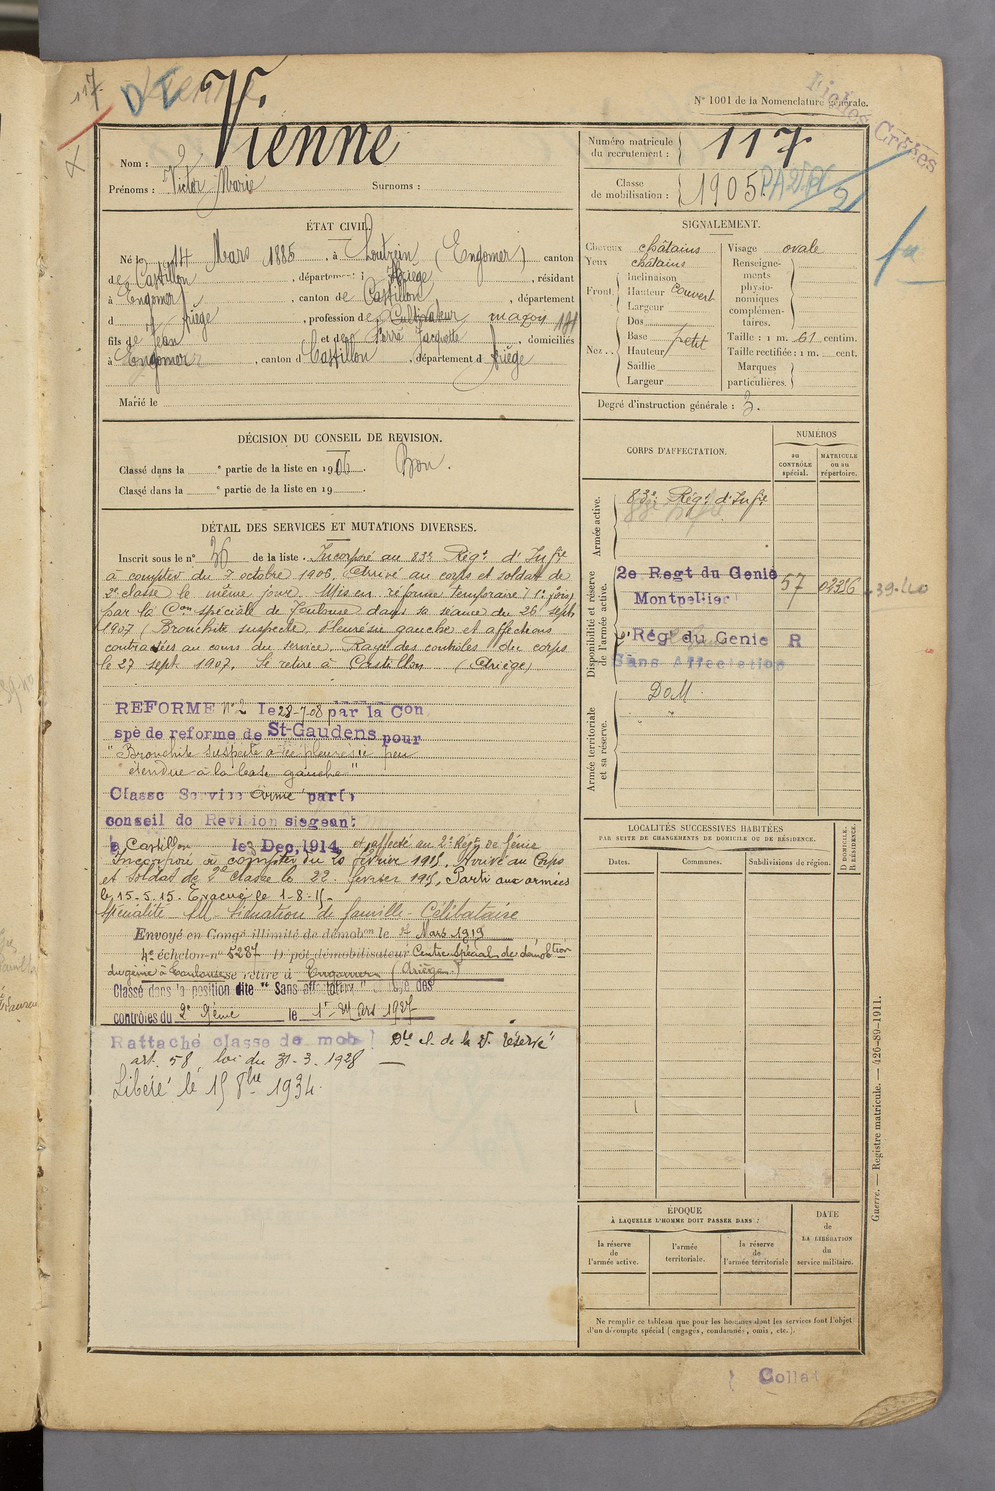 117
N° 1001 de la Nomenclature générale.
Fiches Créées
Nom : Vienne
Prénoms : Victor Marie Surnoms :
Numéro matricule du recrutement : 117
Classe de mobilisation : 1905
ÉTAT CIVIL
Né le 14 Mars 1885, à (Engomer) canton
de Castillon, département : Ariège, résidant
à Engomer, canton de Castillon, département
d Ariège, profession de Cultivateur maçon
fils de Jean et de Jacquette, domiciliés
à Engomer, canton d Castillon, département d Ariège
Marié le
SIGNALEMENT.
Cheveux châtains
Yeux châtains
Front.
Inclinaison
Hauteur couvert
Largeur
Nez..
Dos
Base petit
Hauteur
Saillie
Largeur
Visage ovale
Renseignements physionomiques complémentaires.
Taille : 1 m. 61 centim.
Taille rectifiée : 1 m. cent.
Marques particulières.
Degré d'instruction générale : 3.
DÉCISION DU CONSEIL DE REVISION.
Classé dans la ° partie de la liste en 1906. Bon.
Classé dans la ° partie de la liste en 19
DÉTAIL DES SERVICES ET MUTATIONS DIVERSES.
Inscrit sous le n° 36 de la liste. Incorporé au 83e Régt d'Infie
à compter du 7 octobre 1906. Arrivé au corps et soldat de
2e classe le même jour. Mis en réforme temporaire (1e fois)
par la Con spéciale de Toulouse dans sa séance du 26 sept
1907 (Bronchite suspecte. Pleurésie gauche et affections
contractées au cours du service. Rayé des contrôles du corps
le 27 sept 1907. Se retire à Castillon (Ariège)
REFORME N°2 le 28-7-08 par la Con
spè de reforme de St-Gaudens pour
"Bronchite suspecte avec pleurésie peu
étendue à la base gauche"
Classe Service Armé par le
conseil de Revision siegeant
à Castillon le 3 Dec. 1914 et affecté au 2e Rég de Génie
Incorporé à compter du 20 février 1915. Arrivé au Corps
et soldat de 2e classe le 22 février 1915. Parti aux armées
le 15.5.15. Evacué le 1-8-15.
Situation de famille - Célibataire
Envoyé en Congé illimité de démobon le Mars 1919
4e échelon n° 5287 Dépôt démobilisateur Centre Spécial de démobtion
du génie à Toulouse se retire à Engomer (Ariège)
Classé dans la position dite "Sans affectation" et rayé des
contrôles du 2e Génie le 1er Mars 1927
Rattaché classe de mob Dle pl. de la 2e réserve
art. 58, loi du 31-3-1928
Libéré le 15 8bre 1934.
CORPS D'AFFECTATION.
NUMÉROS
au CONTRÔLE spécial.
MATRICULE ou au répertoire.
Armée active.
83e Régt d'Infie
Disponibilité et réserve de l'armée active.
2e Regt du Genie 57 02326
Montpellier
39-40
Rég du Genie R
Sans Affectation
Armée territoriale et sa réserve.
DoM
LOCALITÉS SUCCESSIVES HABITÉES
PAR SUITE DE CHANGEMENTS DE DOMICILE OU DE RÉSIDENCE.
Dates.
Communes.
Subdivisions de région.
D DOMICILE.
R RÉSIDENCE.
ÉPOQUE
À LAQUELLE L'HOMME DOIT PASSER DANS :
la réserve de l'armée active.
l'armée territoriale.
la réserve de l'armée territoriale
DATE de LA LIBÉRATION du service militaire.
Ne remplir ce tableau que pour les hommes dont les services font l'objet
d'un décompte spécial (engagés, condamnés, omis, etc.).
Guerre. — Registre matricule. — 426-89-1911.